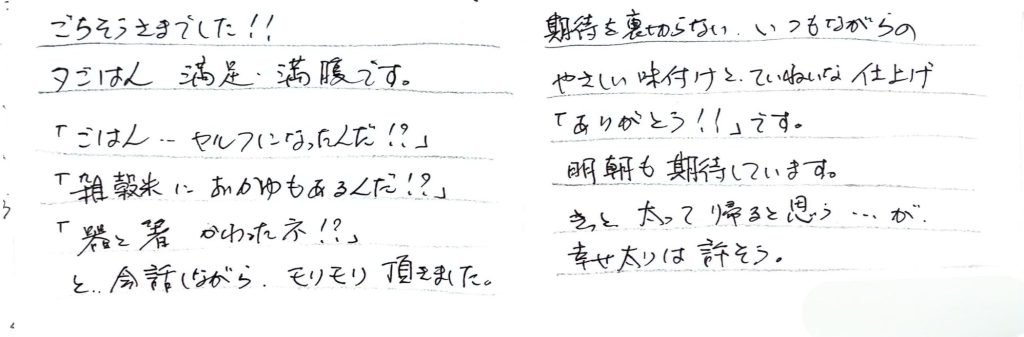 ごちそうさまでした!!
夕ごはん 満足・満腹です。
「ごはん… セルフになったんだ!?」
「雑穀米に おかゆもあるんだ!?」
「器と箸 かわったネ!?」
と.. 会話しながら、モリモリ 頂きました。
期待を裏切らない、いつもながらの
やさしい味付けと、ていねいな 仕上げ
「ありがとう!!」です。
明朝も 期待しています。
きっと 太って 帰ると思う …が、
幸せ太りは 許そう。